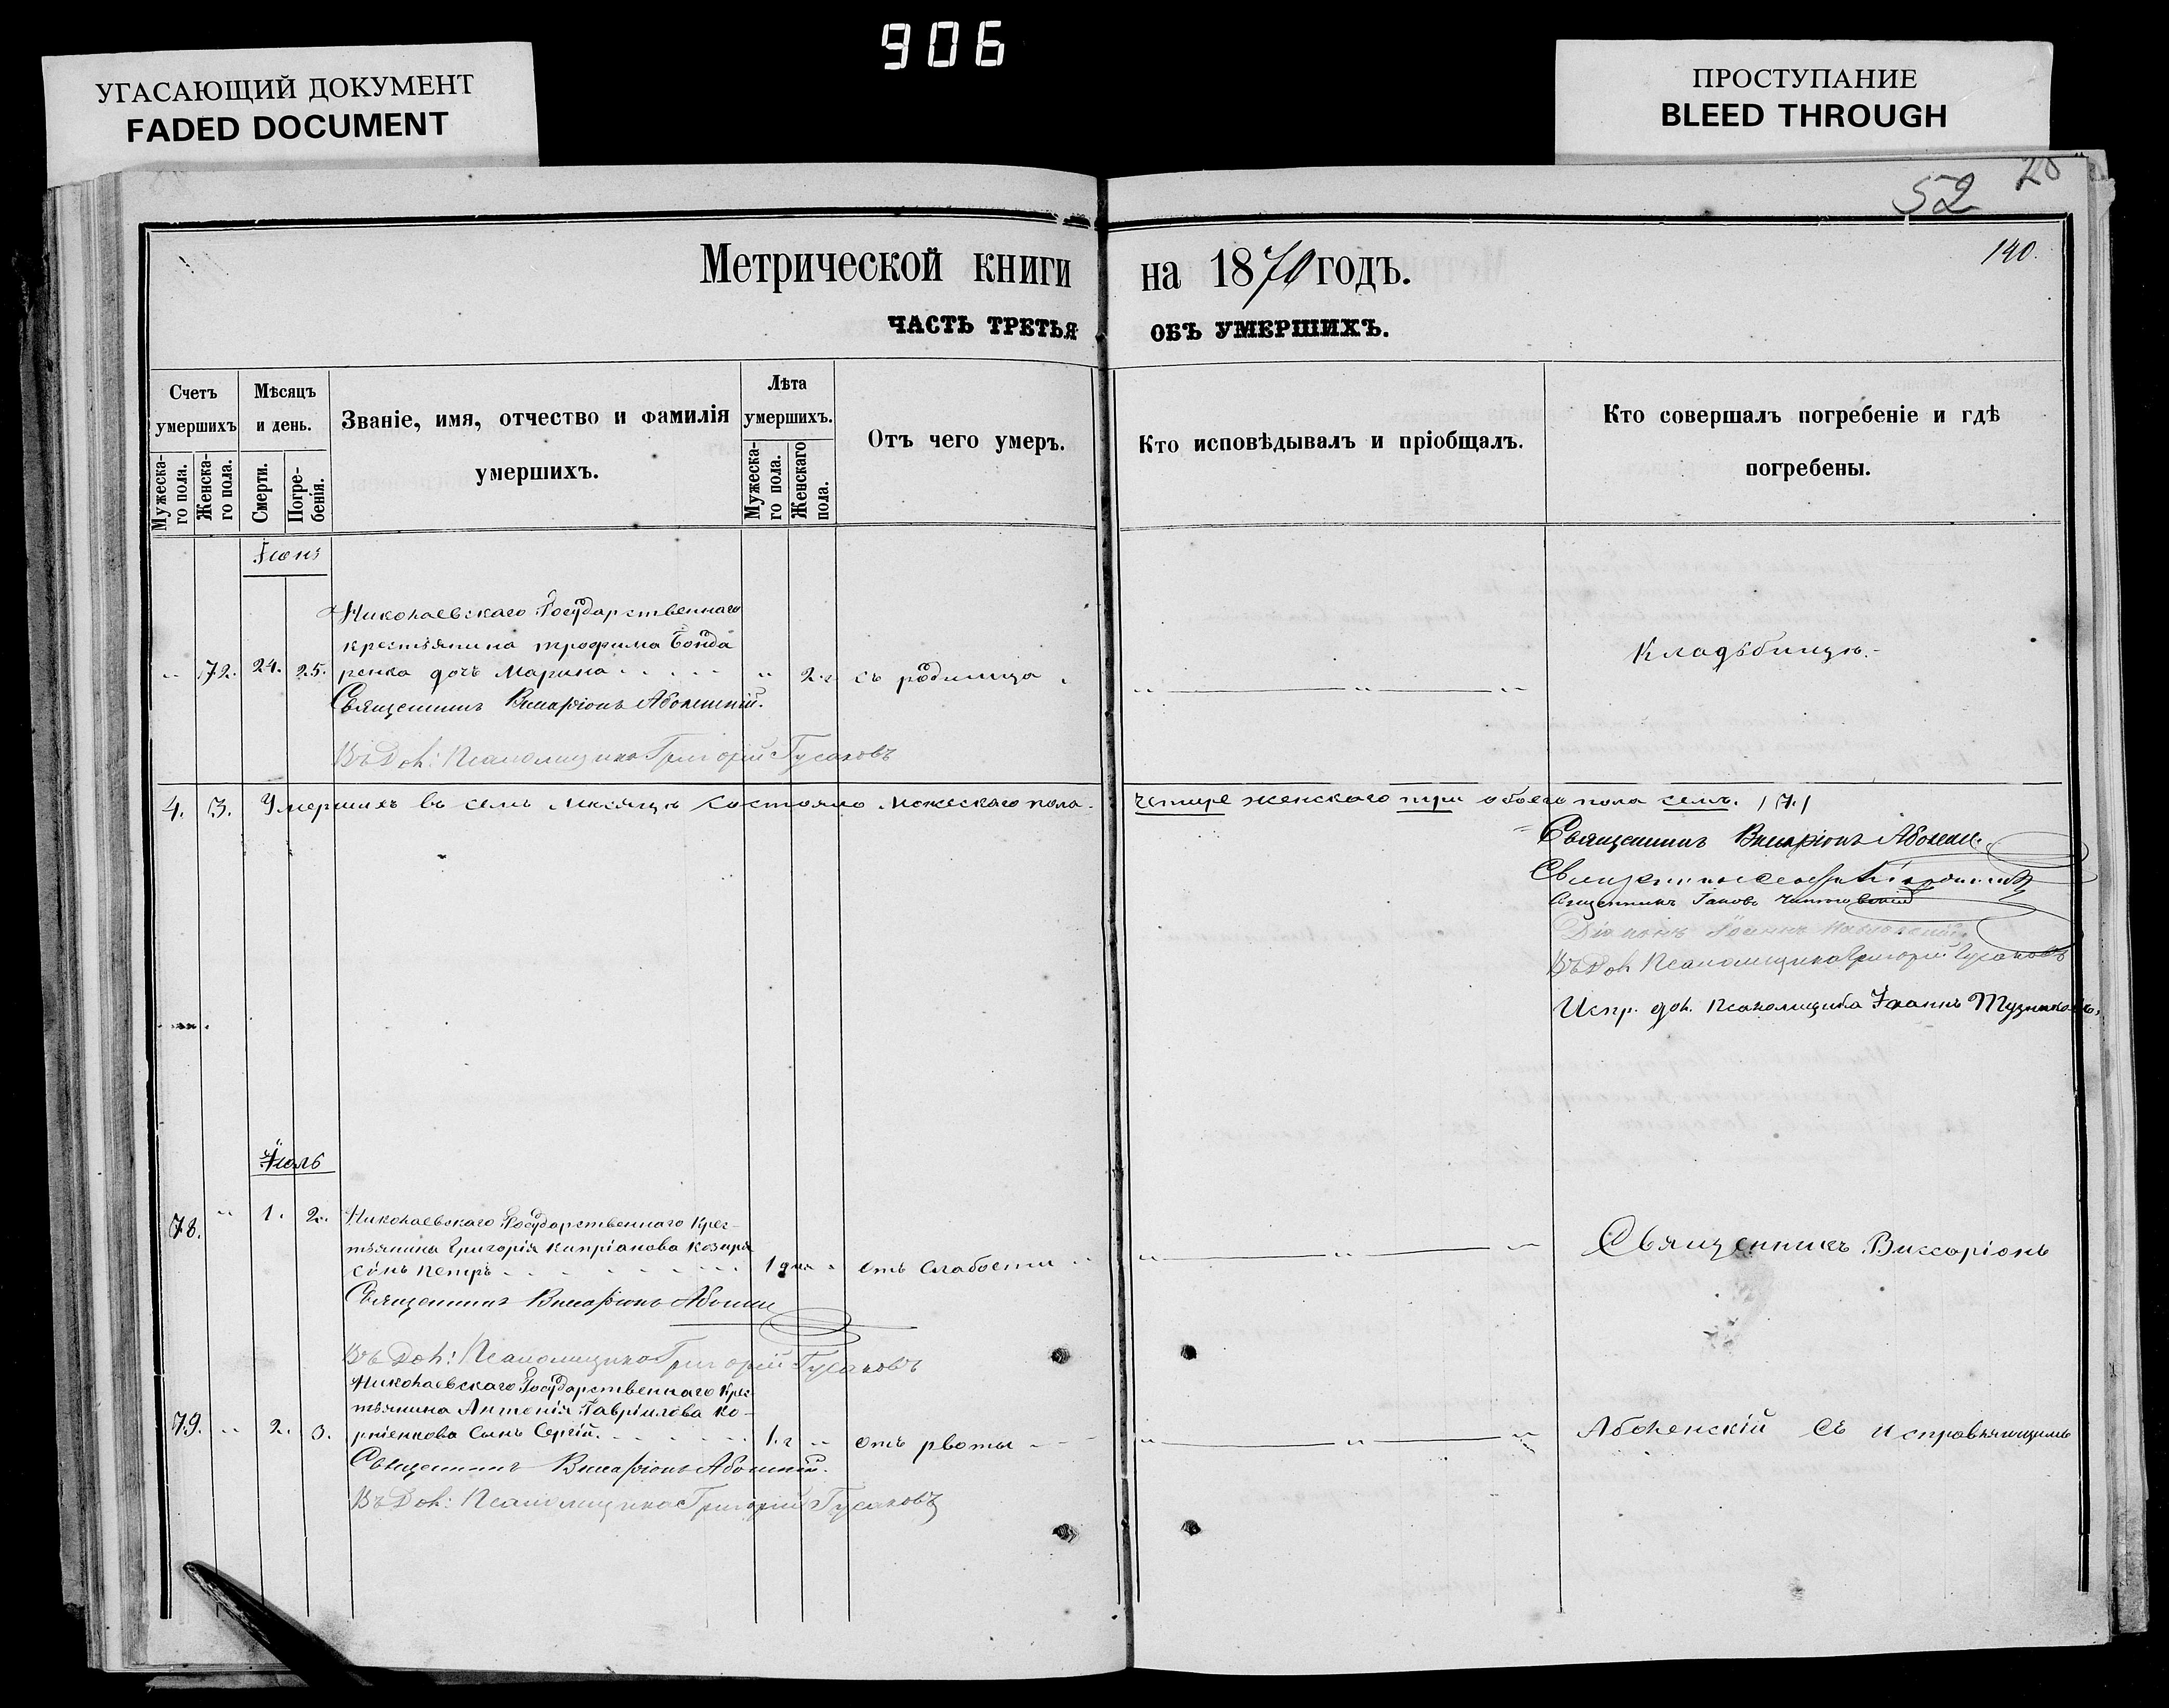 906
УГАСАЮЩИЙ ДОКУМЕНТ
FADED DOCUMENT
ПРОСТУПАНИЕ
BLEED THROUGH
52
20
140.
Метрической книги на 1870 годъ.
ЧАСТЬ ТРЕТЬЯ ОБЪ УМЕРШИХЪ.
Счетъ умершихъ
Мужеска-го пола.
Женска-го пола.
Мѣсяцъ и день.
Смерти.
Погре-бенія.
Званіе, имя, отчество и фамилія умершихъ.
Лѣта умершихъ.
Мужеска-го пола.
Женскаго пола.
Отъ чего умеръ.
Кто исповѣдывалъ и пріобщалъ.
Кто совершалъ погребеніе и гдѣ погребены.
Іюнь
Николаевскаго Государственнаго
крестьянина Трофима Бонда
72. 24. 25. ренка дочь Марина 2 г съ родимца
Священникъ Виссаріонъ Аболенскій.
Въ Дол: Псаломщика Григорій Гусаковъ
Кладѣбищѣ.
4. 3. Умершихъ въ семъ мѣсяцѣ состояло можескаго пола четыре женскаго три обоего пола семь. /7/
Священникъ Виссаріонъ Аболен
Священникъ
Священникъ Іаковъ
Діаконъ Іоаннъ
Въ Дол Псаломщика Григорій Гусаковъ
Испр. дол. Псаломщика Іоаннъ
Іюль
78. 1. 2. Николаевскаго Государственнаго Крес-
тьянина Григорія Кипріанова Козиря
сынъ Петръ 1 дня отъ слабости
Священникъ Виссаріонъ
Священникъ Виссаріонъ
Въ Дол: Псаломщика Григорій Гусаковъ
Николаевскаго Государственнаго Крес-
тьянина Антонія Гавріилова Ко-
79. 2. 3. рніенкова Сынъ Сергій. 1. г отъ рвоты
Священникъ Виссаріонъ Аболенскій.
Аболенскій съ исправляющимъ
Въ Дол: Псаломщика Григорій Гусаковъ